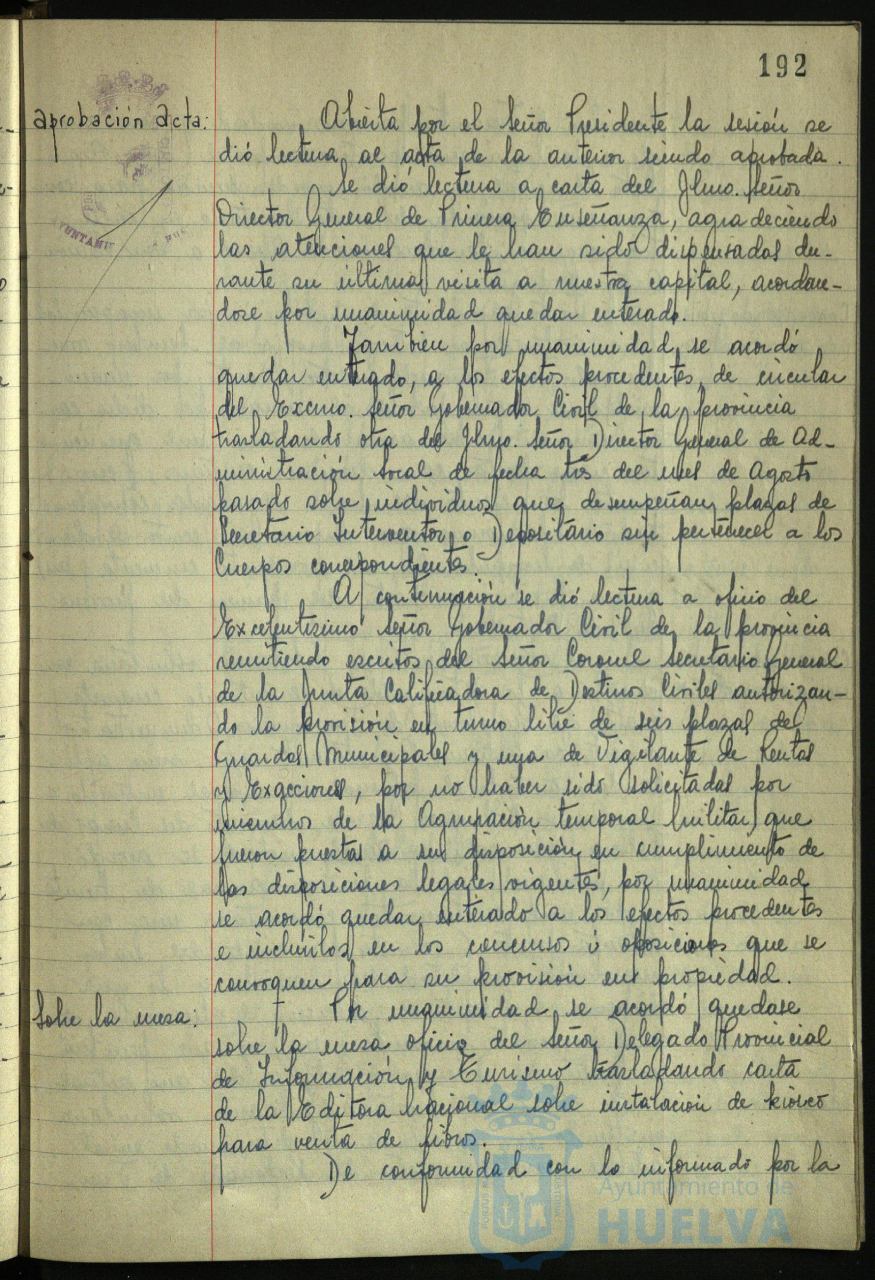 192
aprobación acta:
Abierta por el Señor Presidente la sesión se
dió lectura al acta de la anterior siendo aprobada.
Se dió lectura a carta del Ilmo. Señor
Director General de Primera Enseñanza, agradeciendo
las atenciones que le han sido dispensadas du-
rante su última visita a nuestra capital, acordan-
dose por unanimidad quedar enterado.
Tambien por unanimidad se acordó
quedar enterado, a los efectos procedentes, de circular
del Excmo. Señor Gobernador Civil de la provincia
trasladando otra del Ilmo. Señor Director General de Ad-
ministración Local de fecha tres del mes de Agosto
pasado sobre individuos que desempeñan plazas de
Secretario Interventor o Depositario sin pertenecer a los
Cuerpos correspondientes.
A continuación se dió lectura a oficio del
Excelentisimo Señor Gobernador Civil de la provincia
remitiendo escritos del Señor Coronel Secretario General
de la Junta Calificadora de Destinos Civiles autorizan-
do la provisión en turno libre de seis plazas de
Guardas Municipales y una de Vigilante de Rentas
y Exacciones, por no haber sido solicitadas por
miembros de la Agrupación temporal militar, que
fueron puestas a su disposición en cumplimiento de
las disposiciones legales vigentes, por unanimidad
se acordó quedar enterado a los efectos procedentes
e incluirlos en los concursos ú oposiciones que se
convoquen para su provisión en propiedad.
Sobre la mesa:
Por unanimidad se acordó quedase
sobre la mesa oficio del Señor Delegado Provincial
de Información y Turismo trasladando carta
de la Editora Nacional sobre instalación de kiosco
para venta de libros.
De conformidad con lo informado por la
Ayuntamiento de
HUELVA